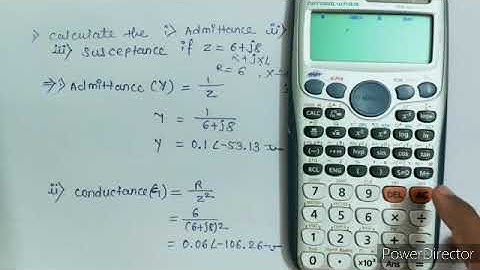 > calculate the i> Admittance ii>
iii> susceptance if z = 6+j8
R+jXL
R=6 , X=
=> i> Admittance (Y) = 1/Z
Y = 1/6+j8
Y = 0.1∠-53.13 ℧
ii> conductance(G) = R/Z²
= 6/(6+j8)2
= 0.06∠-106.26 ℧
NATURAL-V.P.A.M.
SHIFT ALPHA MODE ON
CALC
x² log ln
(−) °'" hyp sin cos tan
RCL ENG ( ) S⇔D M+
7 8 9 DEL AC
4 5 6 × ÷
1 2 3 + −
0 . ×10ˣ Ans =
PowerDirector